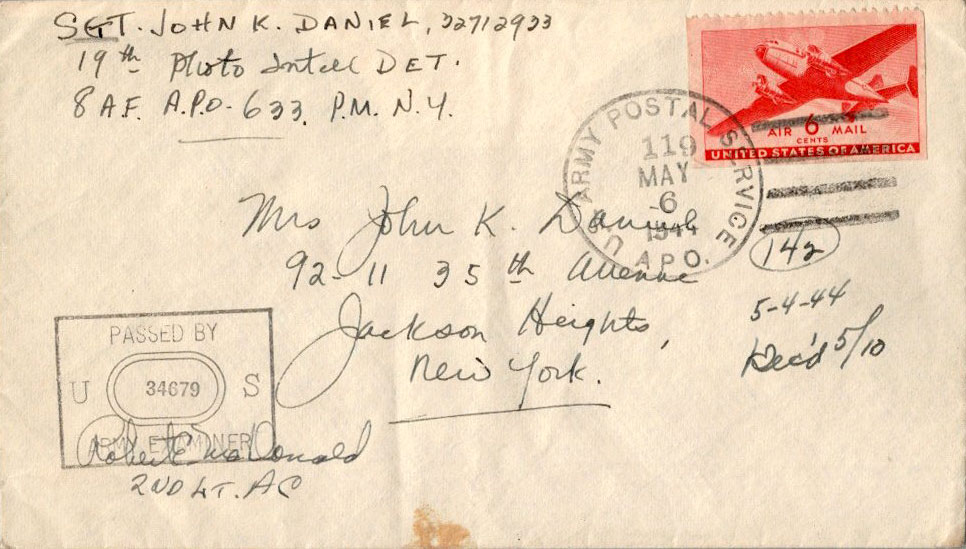 SGT. JOHN K. DANIEL, 32712933
19th Photo Intell DET.
8 A.F. A.P.O-633. P.M. N.Y.
AIR 6 MAIL
CENTS
UNITED STATES OF AMERICA
U.S. ARMY POSTAL SERVICE
119
MAY
-6
1944
A.P.O.
Mrs John K. Daniel
92-11 35th Avenue
Jackson Heights,
New York.
142
5-4-44
Rec'd 5/10
PASSED BY
U 34679 S
ARMY EXAMINER
Robert E. McDonald
2ND LT. AC